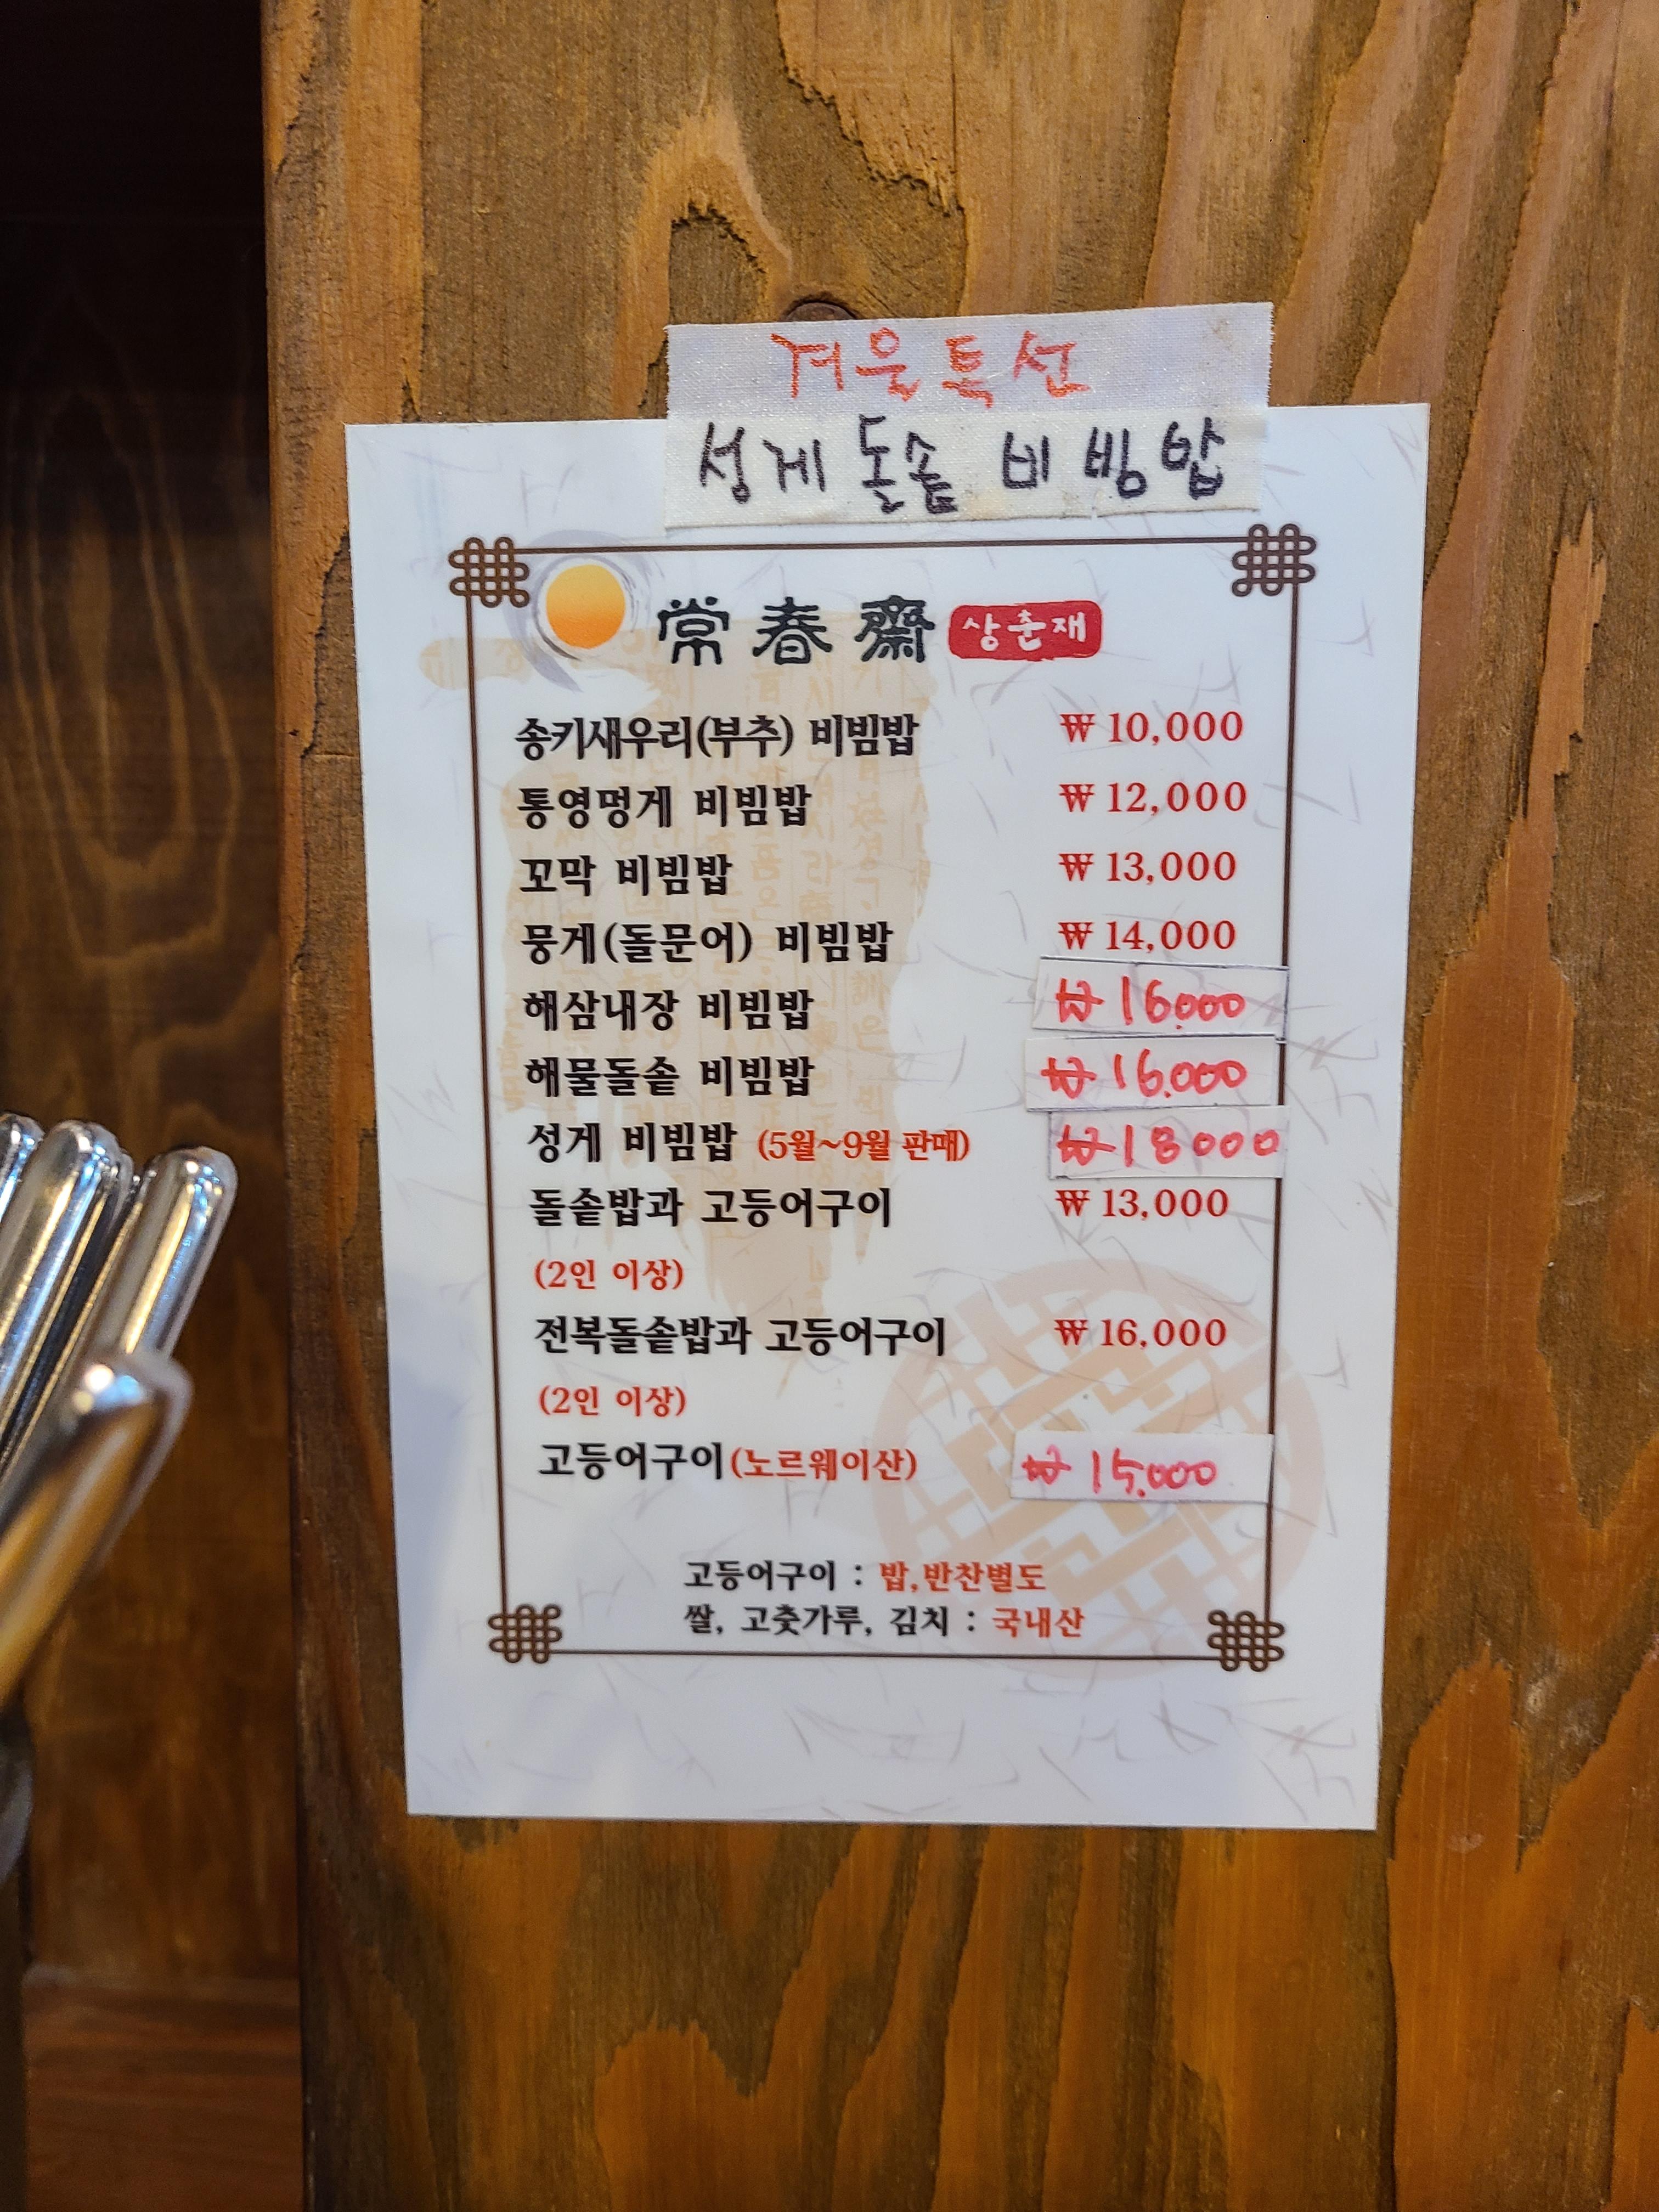 겨울특선
성게 돌솥 비빔밥
常春齋 상춘재
송키새우리(부추) 비빔밥 ₩ 10,000
통영멍게 비빔밥 ₩ 12,000
꼬막 비빔밥 ₩ 13,000
뭉게(돌문어) 비빔밥 ₩ 14,000
해삼내장 비빔밥 ₩ 16.000
해물돌솥 비빔밥 ₩ 16.000
성게 비빔밥 (5월~9월 판매) ₩ 18000
돌솥밥과 고등어구이 ₩ 13,000
(2인 이상)
전복돌솥밥과 고등어구이 ₩ 16,000
(2인 이상)
고등어구이(노르웨이산) ₩ 15.000
고등어구이 : 밥,반찬별도
쌀, 고춧가루, 김치 : 국내산